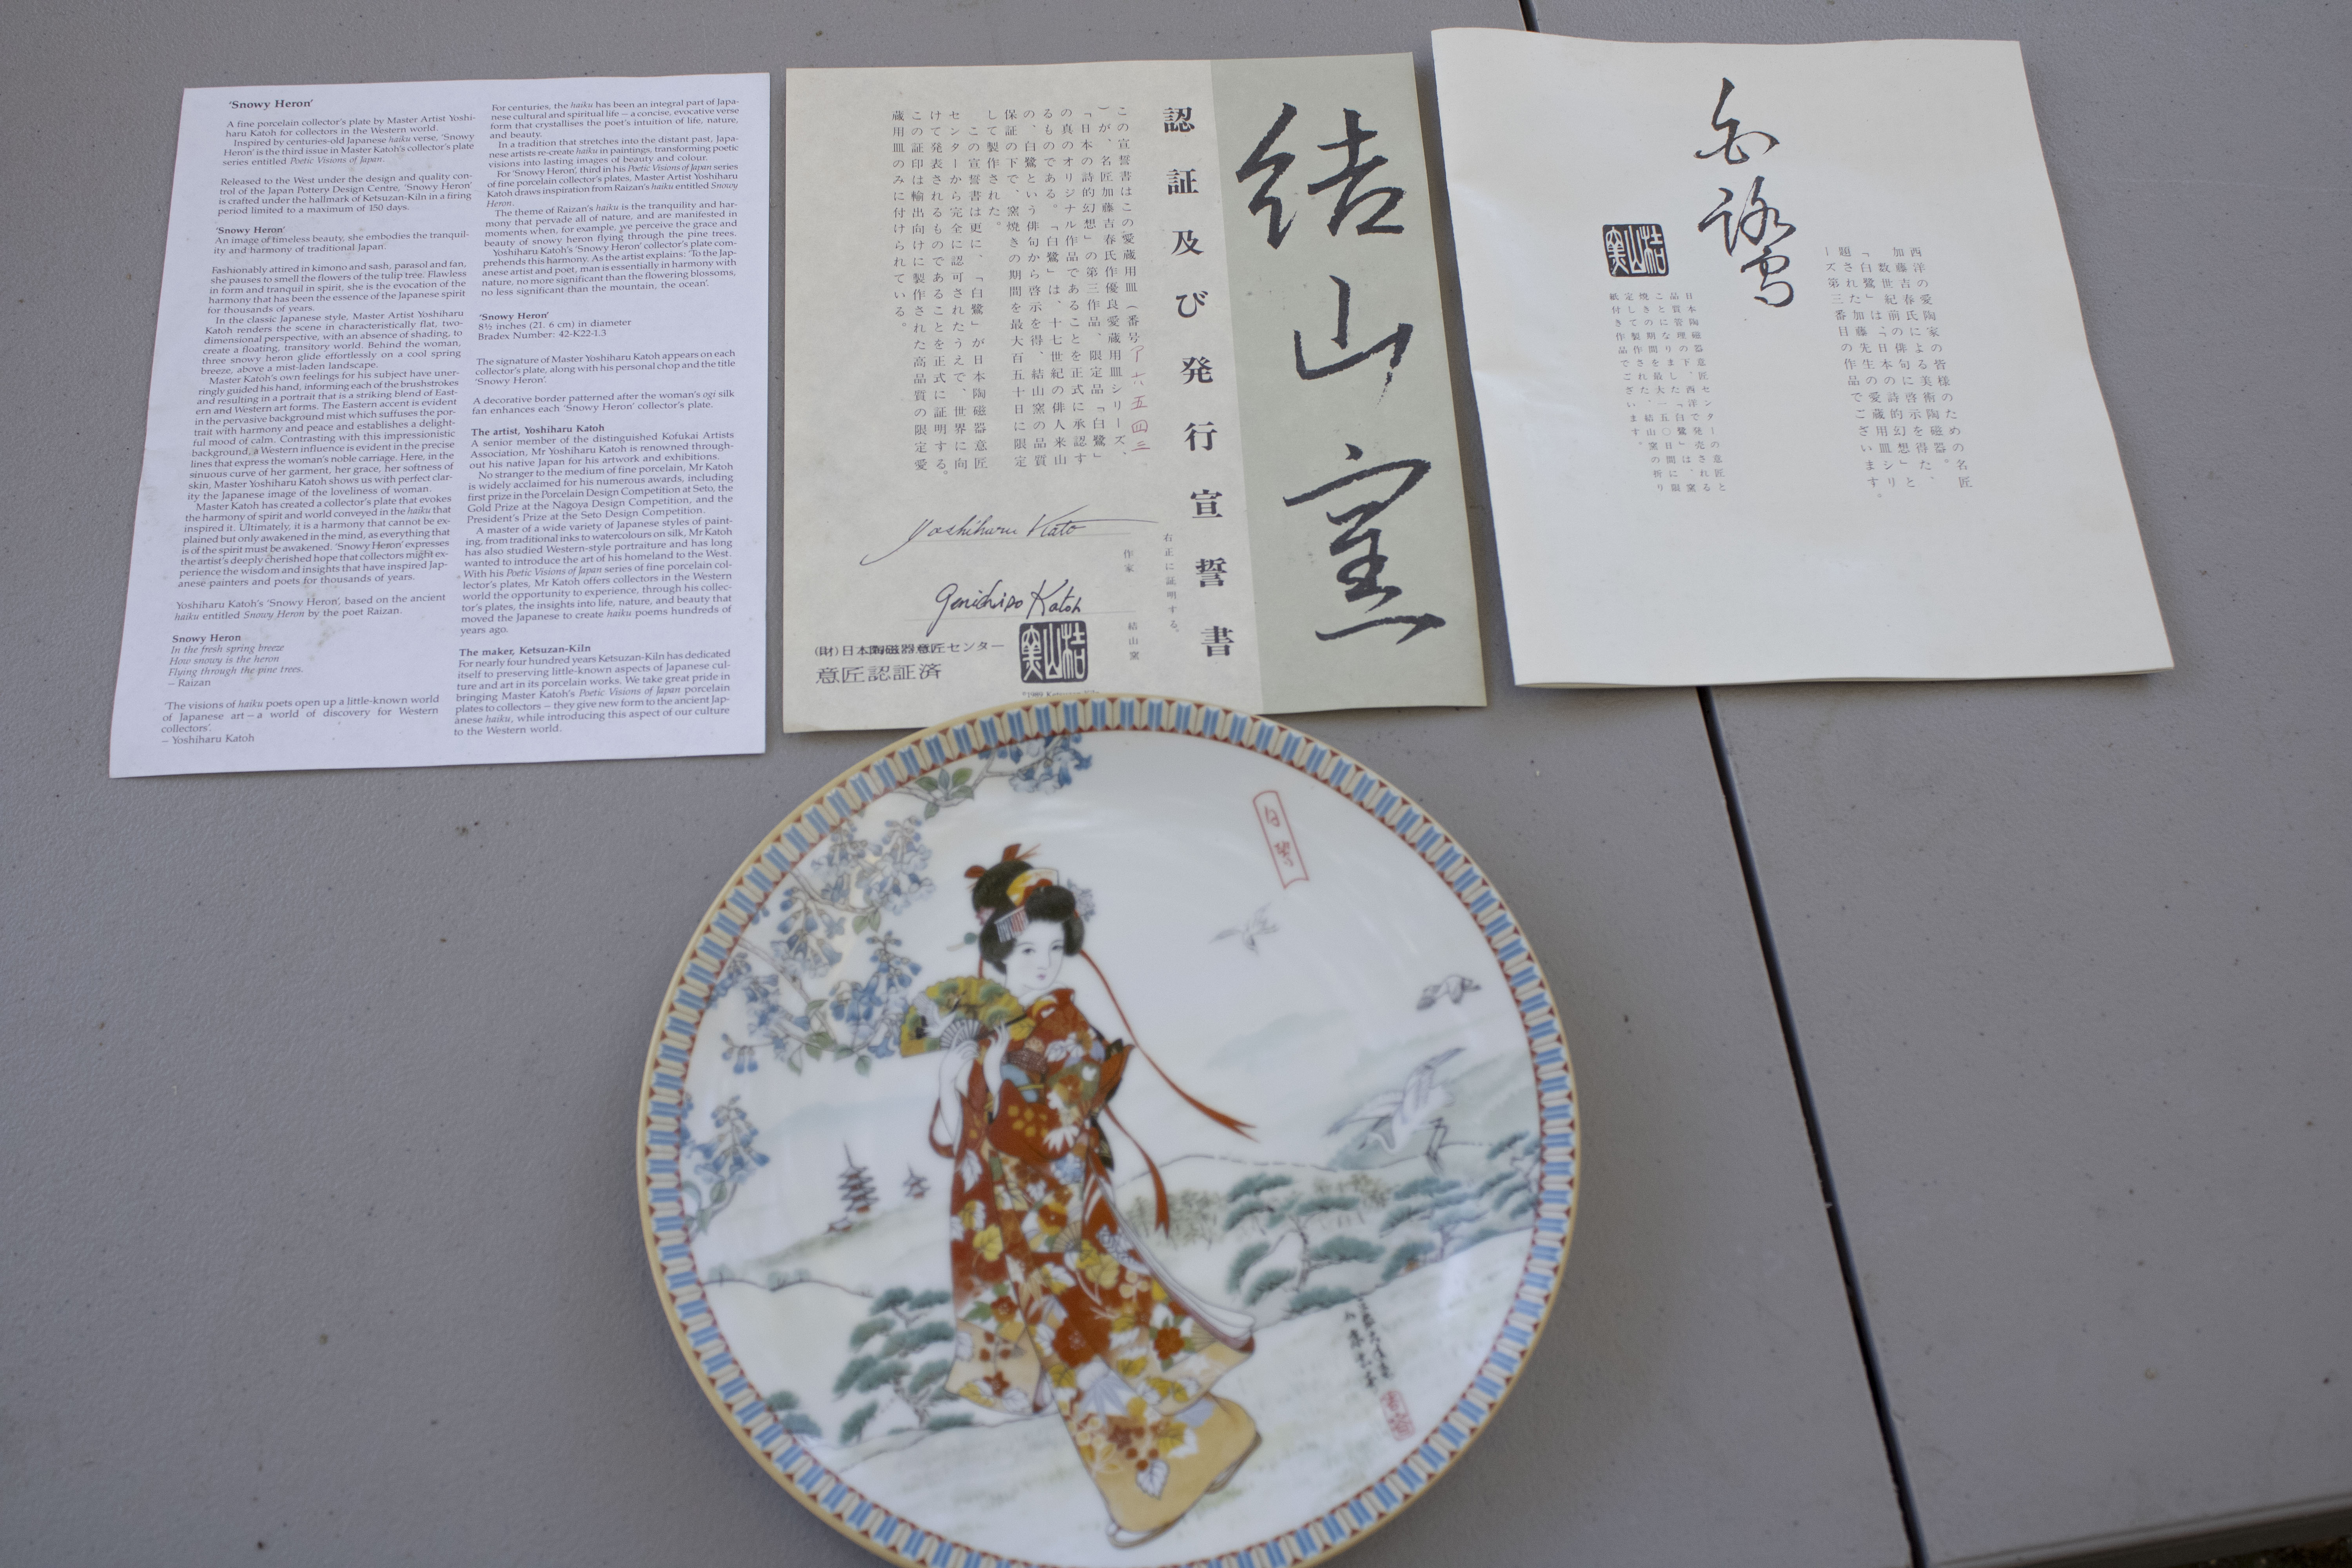 'Snowy Heron'
A fine porcelain collector's plate by Master Artist Yoshi-
haru Katoh for collectors in the Western world.
Inspired by centuries-old Japanese haiku verse, 'Snowy
Heron' is the third issue in Master Katoh's collector's plate
series entitled Poetic Visions of Japan.
Released to the West under the design and quality con-
trol of the Japan Pottery Design Centre, 'Snowy Heron'
is crafted under the hallmark of Ketsuzan-Kiln in a firing
period limited to a maximum of 150 days.
'Snowy Heron'
An image of timeless beauty, she embodies the tranquil-
ity and harmony of traditional Japan.
Fashionably attired in kimono and sash, parasol and fan,
she pauses to smell the flowers of the tulip tree. Flawless
in form and tranquil in spirit, she is the evocation of the
harmony that has been the essence of the Japanese spirit
for thousands of years.
In the classic Japanese style, Master Artist Yoshiharu
Katoh renders the scene in characteristically flat, two-
dimensional perspective, with an absence of shading, to
create a floating, transitory world. Behind the woman,
three snowy heron glide effortlessly on a cool spring
breeze, above a mist-laden landscape.
Master Katoh's own feelings for his subject have uner-
ringly guided his hand, informing each of the brushstrokes
and resulting in a portrait that is a striking blend of East-
ern and Western art forms. The Eastern accent is evident
in the pervasive background mist which suffuses the por-
trait with harmony and peace and establishes a delight-
ful mood of calm. Contrasting with this impressionistic
background, a Western influence is evident in the precise
lines that express the woman's noble carriage. Here, in the
sinuous curve of her garment, her grace, her softness of
skin, Master Yoshiharu Katoh shows us with perfect clar-
ity the Japanese image of the loveliness of woman.
Master Katoh has created a collector's plate that evokes
the harmony of spirit and world conveyed in the haiku that
inspired it. Ultimately, it is a harmony that cannot be ex-
plained but only awakened in the mind, as everything that
is of the spirit must be awakened. 'Snowy Heron' expresses
the artist's deeply cherished hope that collectors might ex-
perience the wisdom and insights that have inspired Jap-
anese painters and poets for thousands of years.
Yoshiharu Katoh's 'Snowy Heron', based on the ancient
haiku entitled Snowy Heron by the poet Raizan.
Snowy Heron
In the fresh spring breeze
How snowy is the heron
Flying through the pine trees.
– Raizan
'The visions of haiku poets open up a little-known world
of Japanese art – a world of discovery for Western
collectors'.
– Yoshiharu Katoh
For centuries, the haiku has been an integral part of Japa-
nese cultural and spiritual life – a concise, evocative verse
form that crystallises the poet's intuition of life, nature,
and beauty.
In a tradition that stretches into the distant past, Japa-
nese artists re-create haiku in paintings, transforming poetic
visions into lasting images of beauty and colour.
For 'Snowy Heron', third in his Poetic Visions of Japan series
of fine porcelain collector's plates, Master Artist Yoshiharu
Katoh draws inspiration from Raizan's haiku entitled Snowy
Heron.
The theme of Raizan's haiku is the tranquility and har-
mony that pervade all of nature, and are manifested in
moments when, for example, we perceive the grace and
beauty of snowy heron flying through the pine trees.
Yoshiharu Katoh's 'Snowy Heron' collector's plate com-
prehends this harmony. As the artist explains: 'To the Jap-
anese artist and poet, man is essentially in harmony with
nature, no more significant than the flowering blossoms,
no less significant than the mountain, the ocean'.
'Snowy Heron'
8½ inches (21. 6 cm) in diameter
Bradex Number: 42-K22-1.3
The signature of Master Yoshiharu Katoh appears on each
collector's plate, along with his personal chop and the title
'Snowy Heron'.
A decorative border patterned after the woman's ogi silk
fan enhances each 'Snowy Heron' collector's plate.
The artist, Yoshiharu Katoh
A senior member of the distinguished Kofukai Artists
Association, Mr Yoshiharu Katoh is renowned through-
out his native Japan for his artwork and exhibitions.
No stranger to the medium of fine porcelain, Mr Katoh
is widely acclaimed for his numerous awards, including
first prize in the Porcelain Design Competition at Seto, the
Gold Prize at the Nagoya Design Competition, and the
President's Prize at the Seto Design Competition.
A master of a wide variety of Japanese styles of paint-
ing, from traditional inks to watercolours on silk, Mr Katoh
has also studied Western-style portraiture and has long
wanted to introduce the art of his homeland to the West.
With his Poetic Visions of Japan series of fine porcelain col-
lector's plates, Mr Katoh offers collectors in the Western
world the opportunity to experience, through his collec-
tor's plates, the insights into life, nature, and beauty that
moved the Japanese to create haiku poems hundreds of
years ago.
The maker, Ketsuzan-Kiln
For nearly four hundred years Ketsuzan-Kiln has dedicated
itself to preserving little-known aspects of Japanese cul-
ture and art in its porcelain works. We take great pride in
bringing Master Katoh's Poetic Visions of Japan porcelain
plates to collectors – they give new form to the ancient Jap-
anese haiku, while introducing this aspect of our culture
to the Western world.
結山窯
認証及び発行宣誓書
この宣誓書はこの愛蔵用皿(番号ア六五四三
)が、名匠加藤吉春氏作優良愛蔵用皿シリーズ、
「日本の詩的幻想」の第三作品、限定品「白鷺」
の真のオリジナル作品であることを正式に承認す
るものである。「白鷺」は、十七世紀の俳人来山
の、白鷺という俳句から啓示を得、結山窯の品質
保証の下で、窯焼きの期間を最大百五十日に限定
して製作された。
この宣誓書は更に、「白鷺」が日本陶磁器意匠
センターから完全に認可されたうえで、世界に向
けて発表されるものであることを正式に証明する。
この証印は輸出向けに製作された高品質の限定愛
蔵用皿のみに付けられている。
右正に証明する。
Yoshiharu Kato
作家
Genichiro Katoh
結山窯
(財)日本陶磁器意匠センター
意匠認証済
結山窯
©1989 Ketsuzan-Kiln
白鷺
結山窯
西洋の愛陶家の皆様のための名匠
加藤吉春氏による美術陶磁器。
数世紀前の俳句に啓示を得た、
「白鷺」は「日本の詩的幻想」と
題された加藤先生の愛蔵用皿シリ
ーズ第三番目の作品でございます。
日本陶磁器意匠センターの意匠と
品質管理の下、西洋で発売される
ことになりました「白鷺」は、窯
焼きの期間を最大一五〇日間に限
定して製作された、結山窯の折り
紙付き作品でございます。
白鷺